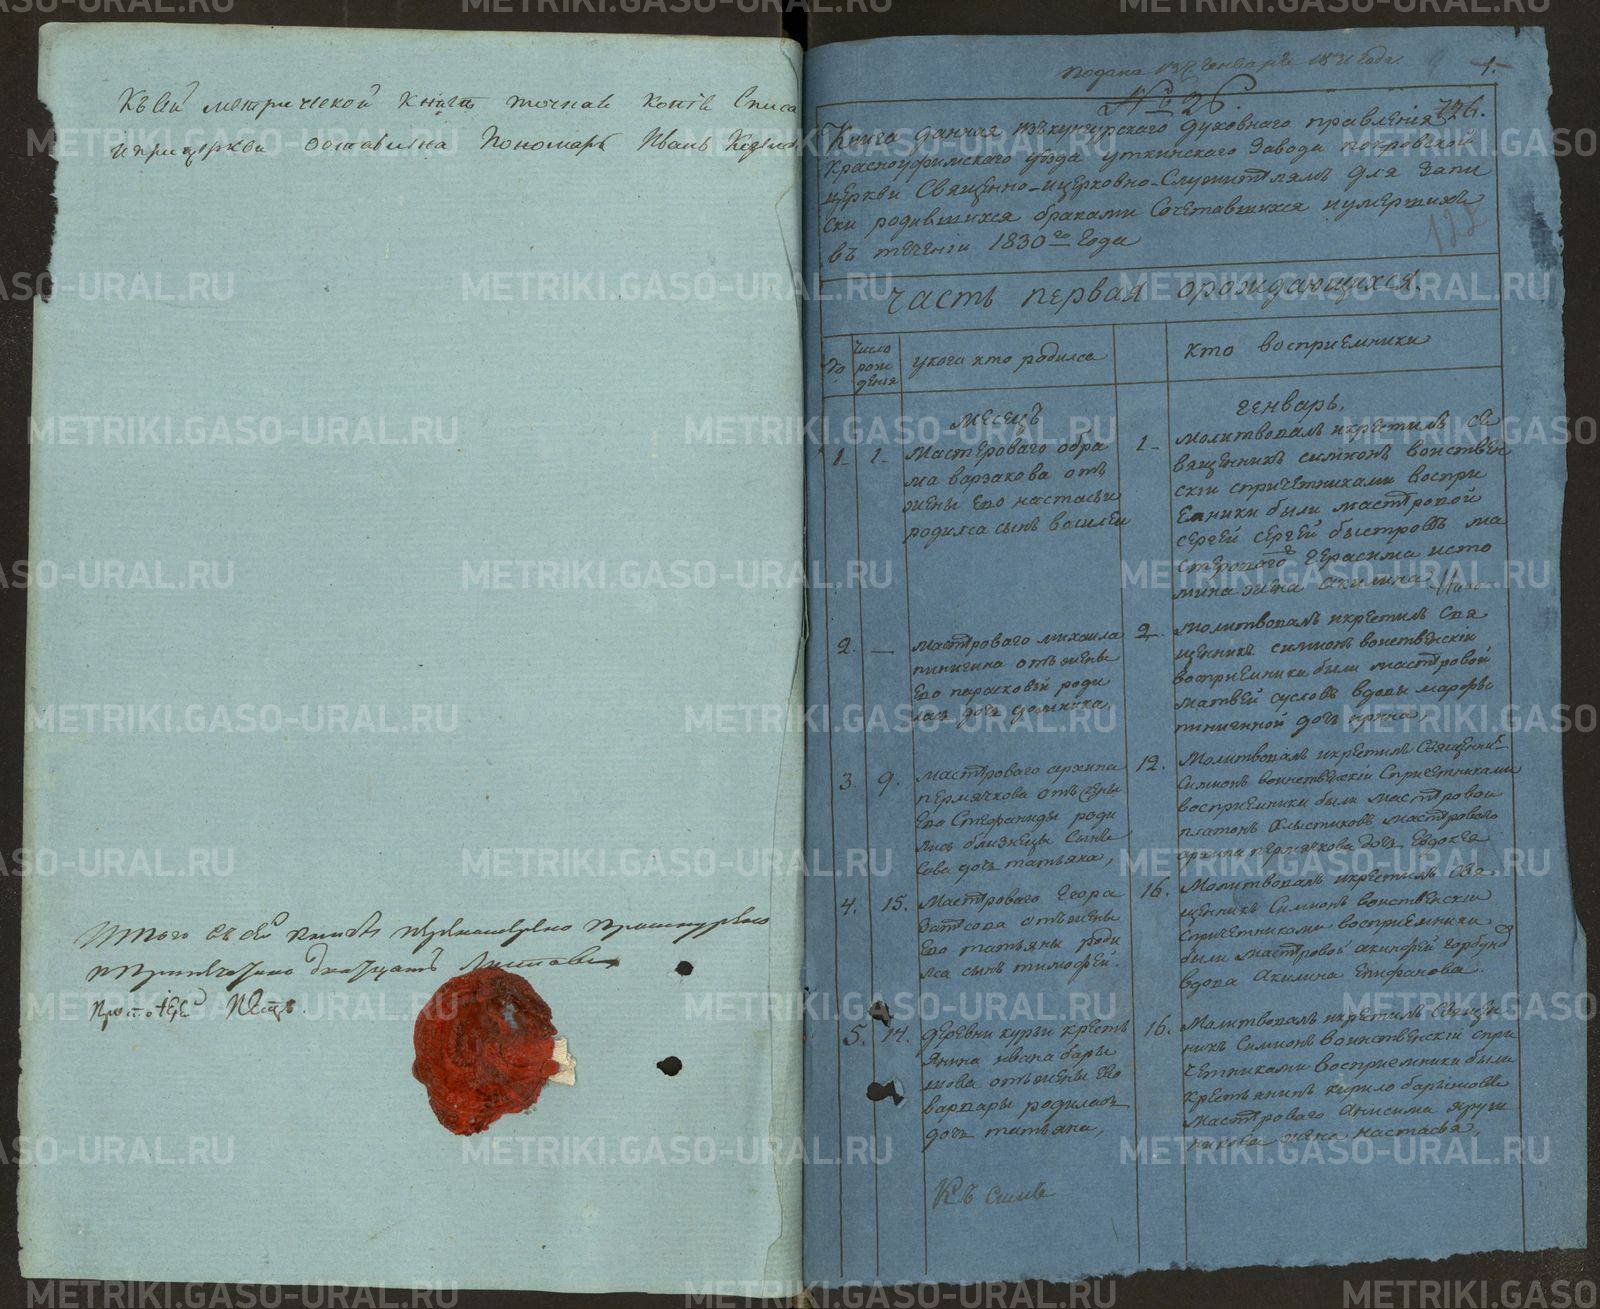 Къ сей метрической книге точная копiя списа
и при церкви оставлена Пономарь Иванъ
Итого въ сей книге перенумеровано прошнуровано
и припечатано двадцать листовъ
Протоiерей
Подана 13 генваря 1831 года
1.
№ 26.
726.
Книга данная изъ кунгурского духовнаго правленiя
красноуфимскаго уезда уткинскаго завода покровской
церкви Священно-ицерковно-Служителямъ для запи
ски родившихся браками сочетавшихся иумершихъ
въ теченiи 1830го года
122
Часть первая орождающихся.
№
Число рож денiя
укого кто родился
кто восприемники
месецъ
генварь,
1. 1.
мастероваго обра
ма варзакова отъ
жены его настасьи
родился сынъ василеи
1.
молитвовалъ икрестилъ св
ященникъ симионъ воинствен
скiи спричетниками воспри
емники были мастровой
сергей сергей быстровъ ма
стероваго герасима исто
мина жена акилина
2. —
мастроваго михаила
пинигина отъ жены
его парасковьи роди
лась дочь домника,
2.
молитвовалъ икрестилъ свя
щенникъ симионъ воинственскiи
восприемники были мастровой
матвей сусловъ вдовы марфы
пинигиной дочь ирина,
3. 9.
мастроваго архипа
пермячкова отъ жены
его Стефаниды роди
лись близнецы сынъ
Сава дочь татьяна,
12.
Молитвовалъ икрестилъ Священни
Симионъ воинственскiи Спричетниками
восприемники были мастровои
платонъ хлыстиковъ мастроваго
архипа пермячкова дочь Евдокеа
4. 15.
Мастроваго Егора
затсова отъ жены
его татьяны роди
лся сынъ тимофей.
16.
Молитвовалъ икрестилъ Свя
щенникъ Симионъ воинственскiи
спричетниками восприемники
были мастровой акинфей горбунов
вдова Акилина Епифанова.
5. 14.
деревни курьи кресть
янина ивана бары
шова отъ жены его
варвары родилась
дочь татьяна,
16.
Молитвовалъ икрестилъ Священ
никъ Симионъ воинственскiй спри
четниками восприемники были
крестьянинъ кирило барышовъ
мастроваго Анисима круги
никова жена настасья,
Къ сим